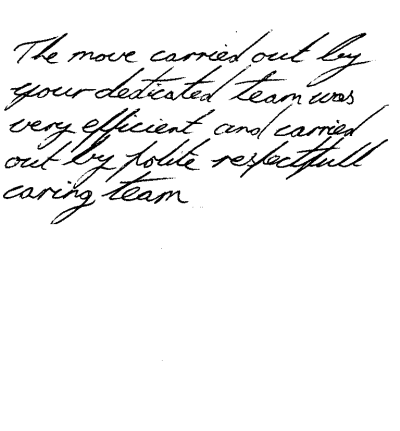 The move carried out by
your dedicated team was
very efficient and carried
out by polite respectfull
caring team